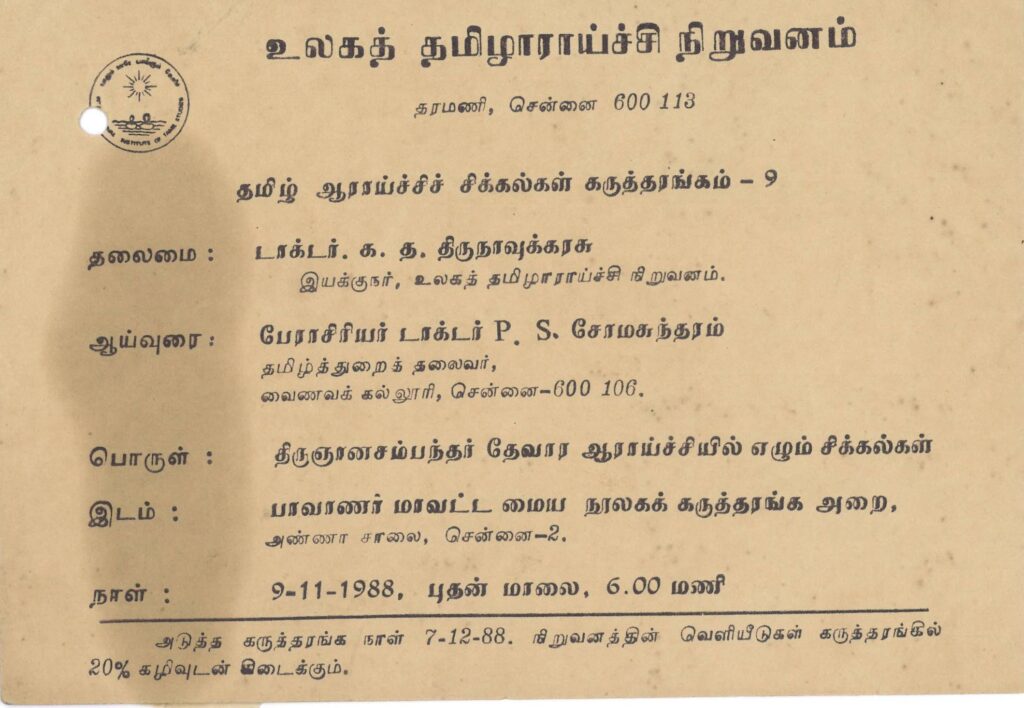 உலகத் தமிழாராய்ச்சி நிறுவனம்
தரமணி, சென்னை 600 113
INSTITUTE OF TAMIL STUDIES
தமிழ் ஆராய்ச்சிச் சிக்கல்கள் கருத்தரங்கம் – 9
தலைமை : டாக்டர். க. த. திருநாவுக்கரசு
இயக்குநர், உலகத் தமிழாராய்ச்சி நிறுவனம்.
ஆய்வுரை : பேராசிரியர் டாக்டர் P. S. சோமசுந்தரம்
தமிழ்த்துறைத் தலைவர்,
வைணவக் கல்லூரி, சென்னை–600 106.
பொருள் : திருஞானசம்பந்தர் தேவார ஆராய்ச்சியில் எழும் சிக்கல்கள்
இடம் : பாவாணர் மாவட்ட மைய நூலகக் கருத்தரங்க அறை,
அண்ணா சாலை, சென்னை–2.
நாள் : 9-11-1988, புதன் மாலை, 6.00 மணி
அடுத்த கருத்தரங்க நாள் 7-12-88. நிறுவனத்தின் வெளியீடுகள் கருத்தரங்கில்
20% கழிவுடன் கிடைக்கும்.